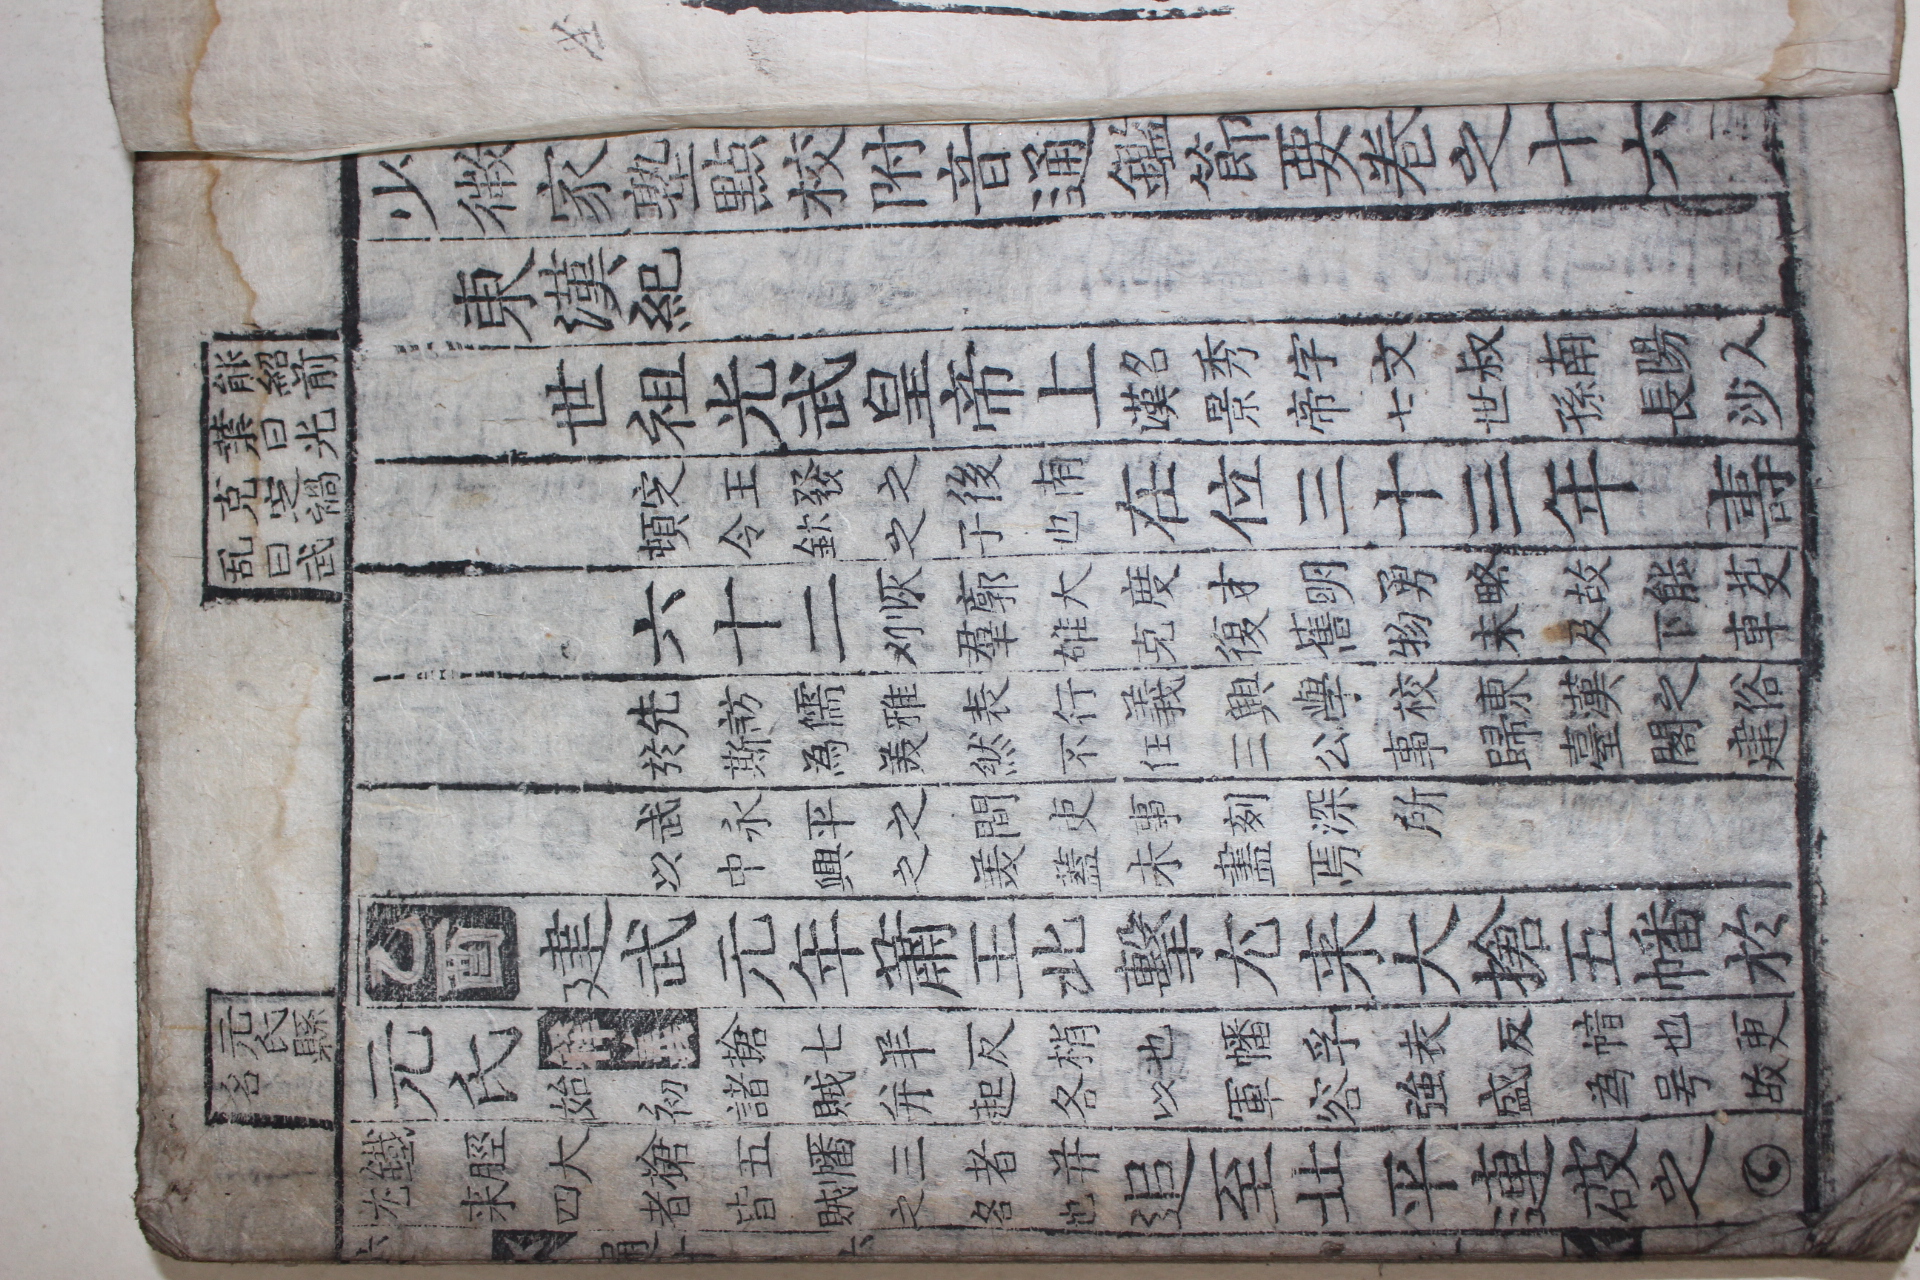 能紹前
葉曰光
克定禍
乱曰武
元氏縣
名
少微家塾點校附音通鑑節要卷之十六
東漢紀
世祖光武皇帝上
名秀字文叔南陽人
漢景帝七世孫長沙
定王發之後南
頓令欽之子也
在位三十三年 壽
六十二
恢廓大度才明勇略故能芟
刈羣雄克復舊物未及下車
先訪儒雅表行義興學校東漢之俗
於斯為美然不任三公事歸臺閣建
武永平之間吏事刻深所
以中興之美蓋未盡焉
乙酉 建武元年蕭王北擊尢来大搶五幡於
元氏
釋義 搶七羊反梢也幡孚表反帽也更
始初諸賊并起各以軍容強盛為号故
鐵脛大搶五幡三者并
尢来四者皆賊之名也
追至北平連破之